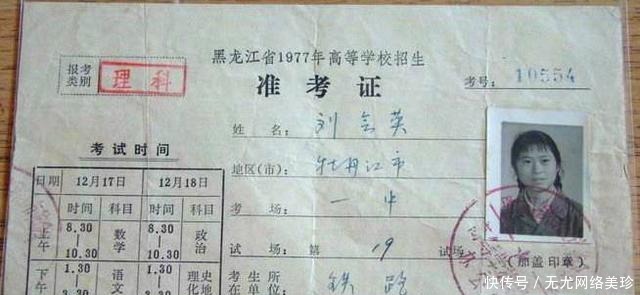 黑龙江省1977年高等学校招生
准考证
报考类别：理科
考号：10554
姓名：刘会英
地区(市)：牡丹江市
考场：一中
试场：第19试场
考生所在单位：铁路
(加盖印章)
考试时间
日期 12月17日 12月18日
时间 科目 时间 科目
上午 8.30—10.30 数学 8.30—10.30 政治
下午 1.30 语文 1.30 理化 史地
快传号/无尤网络美珍